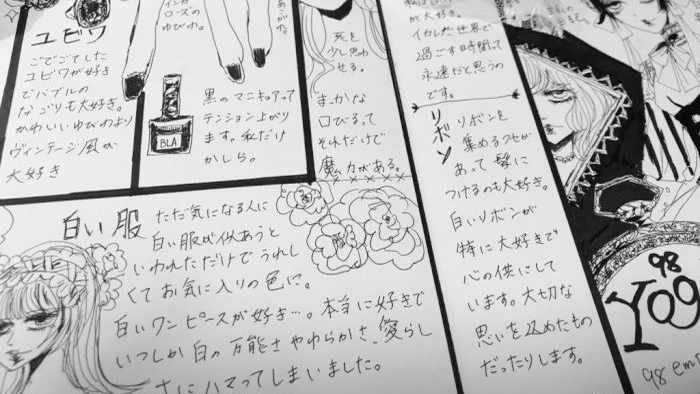 ユビワ
ごてごてした
ユビワが好き
でバブルの
なごりも大好き。
かわいいゆびわより
ヴィンテージ風が
大好き
ローズの
ゆびわ。
BLA
黒のマニキュアって
テンション上がり
ます。私だけ
かしら。
死を
少し思わ
せる。
まっかな
口びるって
それだけで
魔力がある。
が大好き。
イカレた世界で
過ごす時間って
永遠だと思うの
です。
リボン
リボンを
集めるクセが
あって髪に
つけるのも大好き。
白いリボンが
特に大好きで
心の供にして
います。大切な
思いを込めたもの
だったりします。
白い服
ただ気になる人に
白い服が似あうと
いわれただけでうれし
くてお気に入りの色に。
白いワンピースが好き…。本当に好きで
いつしか白の万能さやわらかさ、愛らし
さにハマってしまいました。
98
98